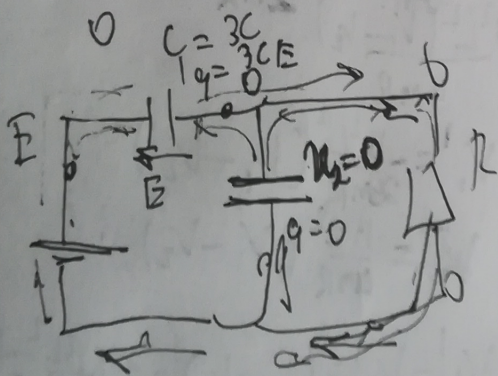 0
C = 3C
q = 3CE
0
0
E
E
U₂=0
R
q=0
0